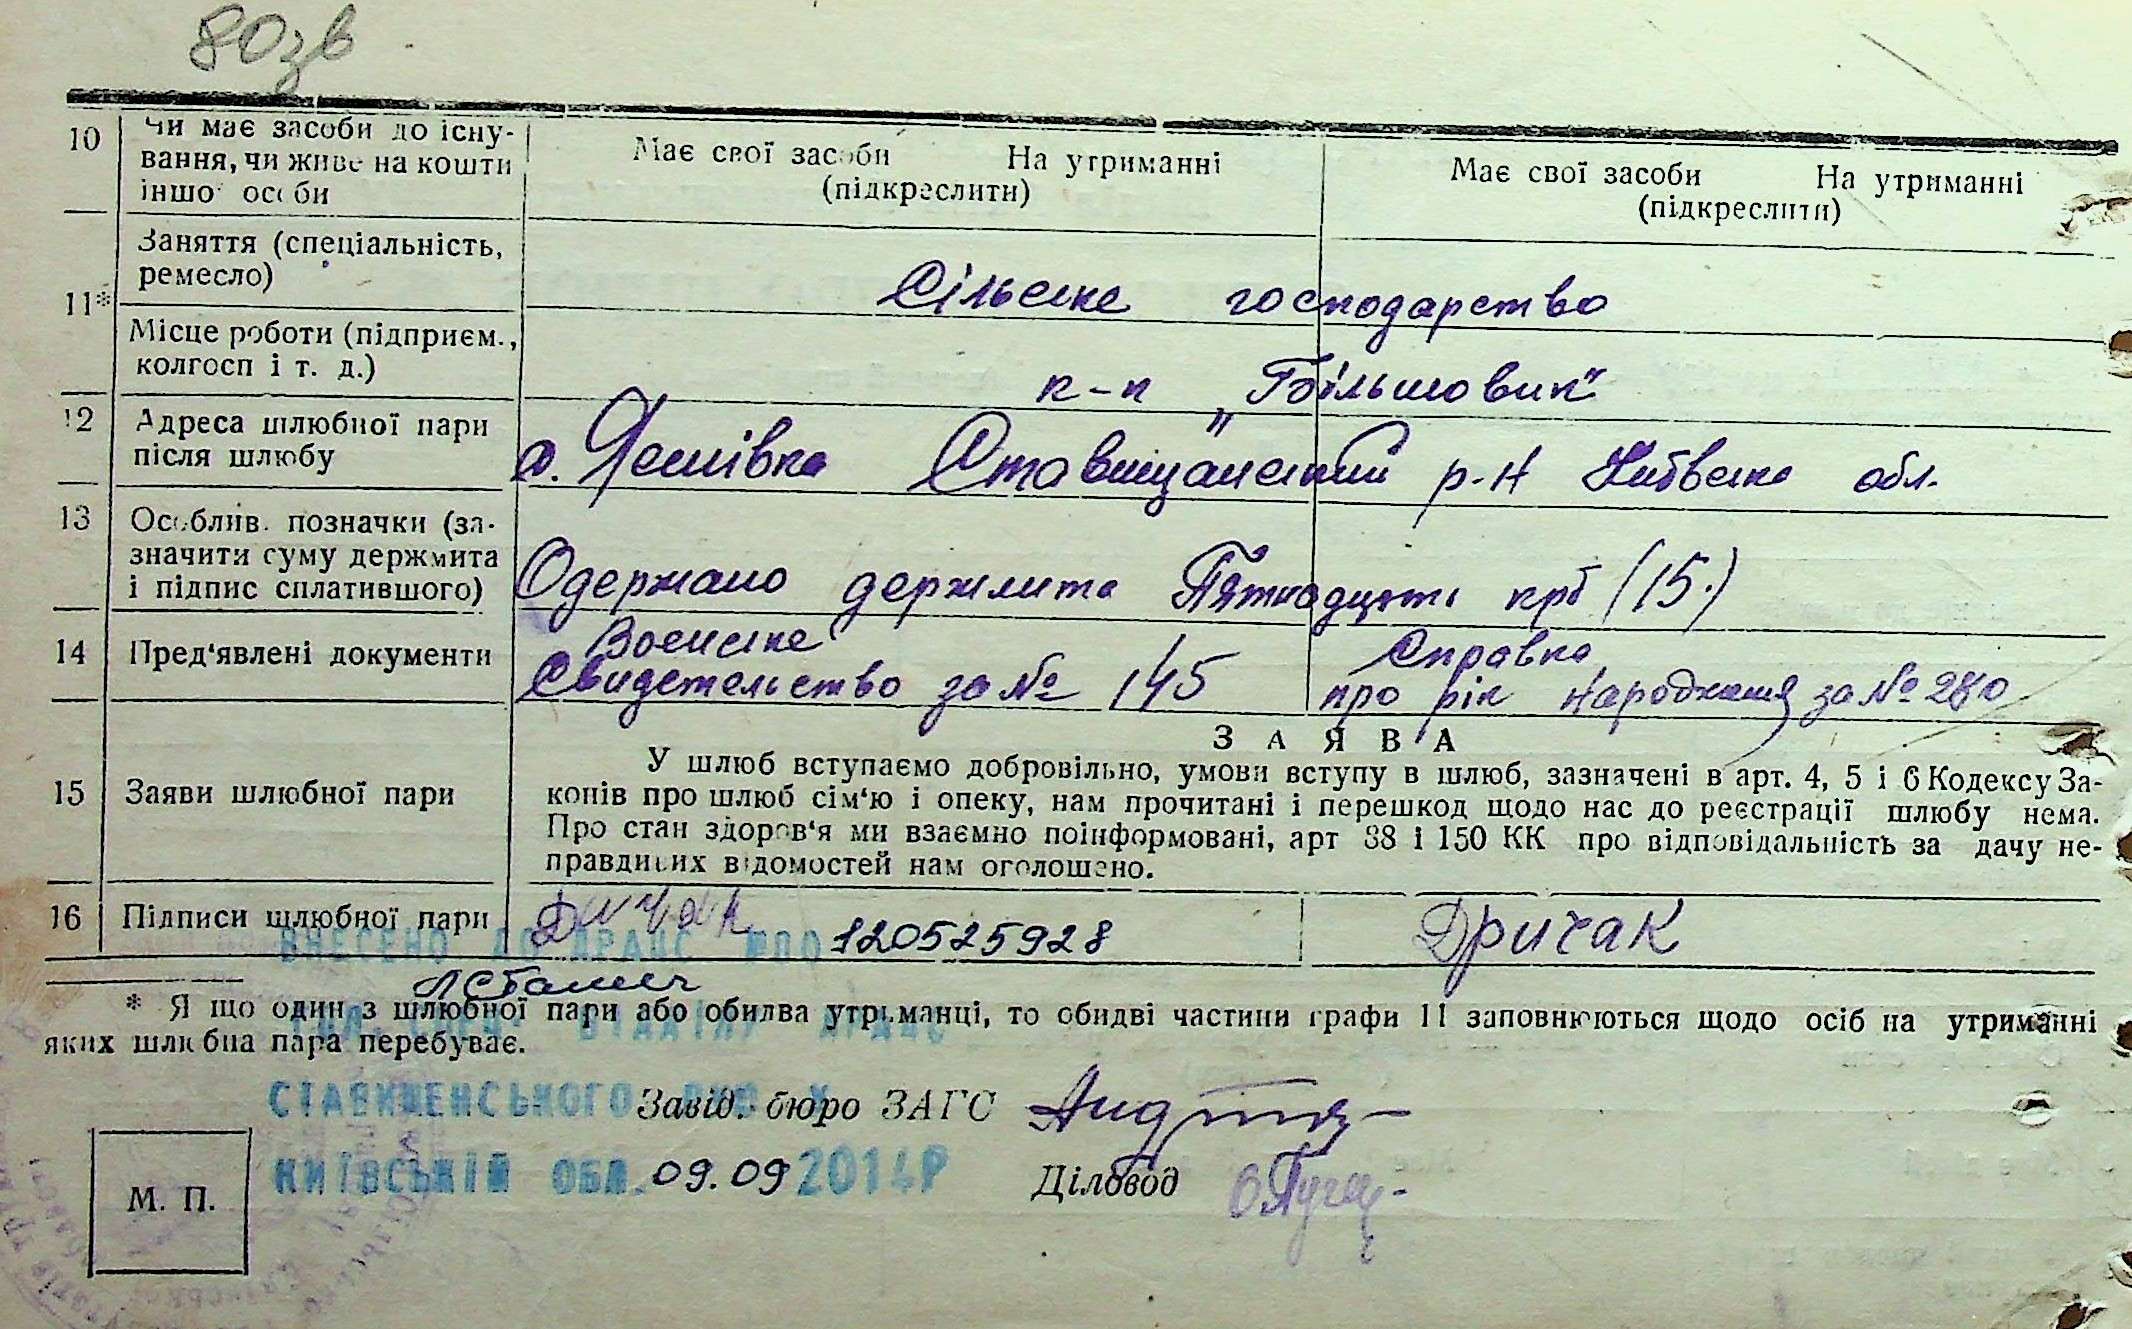 80зв
10 Чи має засоби до існу-
вання, чи живе на кошти
іншо особи
Має свої засоби На утриманні
(підкреслити)
Має свої засоби На утриманні
(підкреслити)
11* Заняття (спеціальність,
ремесло)
Сільске господарство
Місце роботи (підприєм.,
колгосп і т. д.)
к-п „Більшовик"
12 Адреса шлюбної пари
після шлюбу
Ставищанский р-н Київска обл.
13 Особлив. позначки (за-
значити суму держмита
і підпис сплатившого)
Одержано держмита Пятнадцять крб (15.)
14 Пред'явлені документи
Воениске
Свидетельство за № 145
Справка
про рік народження за № 280
ЗАЯВА
15 Заяви шлюбної пари
У шлюб вступаємо добровільно, умови вступу в шлюб, зазначені в арт. 4, 5 і 6 Кодексу За-
конів про шлюб сім'ю і опеку, нам прочитані і перешкод щодо нас до реєстрації шлюбу нема.
Про стан здоров'я ми взаємно поінформовані, арт 88 і 150 КК про відповідальність за дачу не-
правдивих відомостей нам оголошено.
16 Підписи шлюбної пари
Дричак
ВНЕСЕНО ДО ДРАЦС №ПО 120525928
* Я що один з шлюбної пари або обидва утриманці, то обидві частини графи 11 заповнюються щодо осіб на утриманні
яких шлюбна пара перебуває.
ГОЛ. СПЕЦ. ВІДДІЛУ ДРАЦС
СТАВИЩЕНСЬКОГО
Завід. бюро ЗАГС
КИЇВСЬКІЙ ОБЛ. 09.09 2014Р
Діловод
М. П.